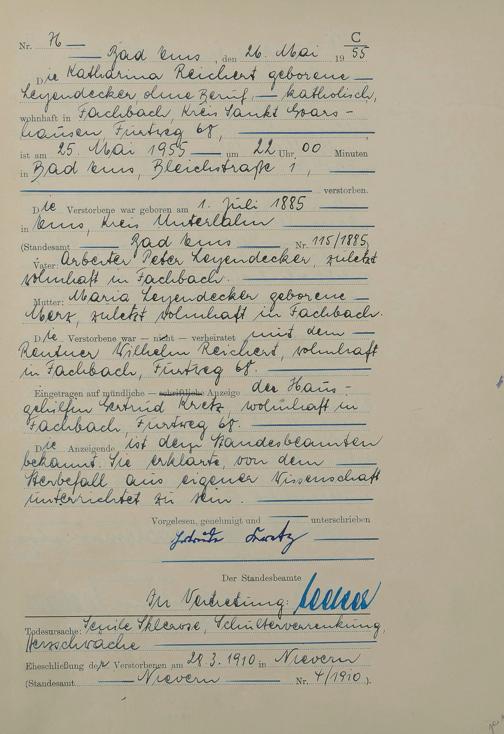 C
Nr. 76
Bad Ems, den 26. Mai 1955
Die Katharina Reichert geborene
Leyendecker, ohne Beruf, — katholisch,
wohnhaft in Fachbach, Kreis Sankt Goars-
hausen, Furtweg 68,
ist am 25. Mai 1955 um 22 Uhr 00 Minuten
in Bad Ems, Bleichstraße 1,
verstorben.
Die Verstorbene war geboren am 1. Juli 1885
in Ems, Kreis Unterlahn
(Standesamt Bad Ems Nr. 115/1885)
Vater: Arbeiter Peter Leyendecker, zuletzt
wohnhaft in Fachbach.
Mutter: Maria Leyendecker geborene
Merz, zuletzt wohnhaft in Fachbach.
Die Verstorbene war — nicht — verheiratet mit dem
Rentner Wilhelm Reichert, wohnhaft
in Fachbach, Furtweg 68.
Eingetragen auf mündliche — schriftliche Anzeige der Haus-
gehilfin Gertrud Kretz, wohnhaft in
Fachbach, Furtweg 68.
Die Anzeigende ist dem Standesbeamten
bekannt. Sie erklärte, von dem
Sterbefall aus eigener Wissenschaft
unterrichtet zu sein.
Vorgelesen, genehmigt und unterschrieben
Der Standesbeamte
In Vertretung:
Todesursache: Senile Sklerose, Schulterverrenkung,
Herzschwäche
Eheschließung der Verstorbenen am 29.3.1910 in Nievern
(Standesamt Nievern Nr. 4/1910).